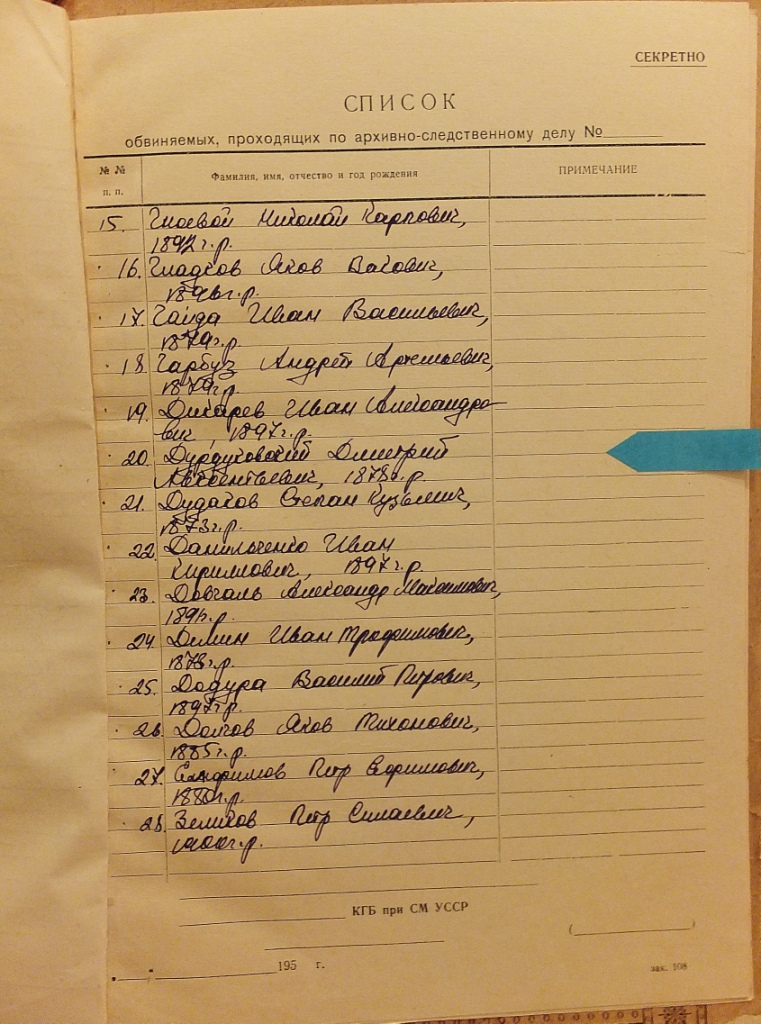 СЕКРЕТНО
СПИСОК
обвиняемых, проходящих по архивно-следственному делу №
№ №
п. п.
Фамилия, имя, отчество и год рождения
ПРИМЕЧАНИЕ
15. Гноевой Николай Карпович,
г.р.
16. Гладков Яков
1896г.р.
17. Гайда Иван Васильевич,
1879г.р.
18 Гарбуз Андрей Артемьевич,
1879г.р.
19. Дикарев Иван Александро-
вич, 1897г.р.
20. Дурдуковский Дмитрий
1878г.р.
21. Дудаков Степан Кузьмич,
1873г.р.
22. Данильченко Иван
Кириллович, 1897г.р.
23. Довгаль Александр Максимович,
г.р.
24. Демин Иван Трофимович,
1878г.р.
25. Додура Василий Петрович,
1897г.р.
26. Долгов Яков Тихонович,
1885г.р.
27. Петр Ефимович,
1880г.р.
28. Петр Силаевич,
1900г.р.
КГБ при СМ УССР
195 г.
зак. 108